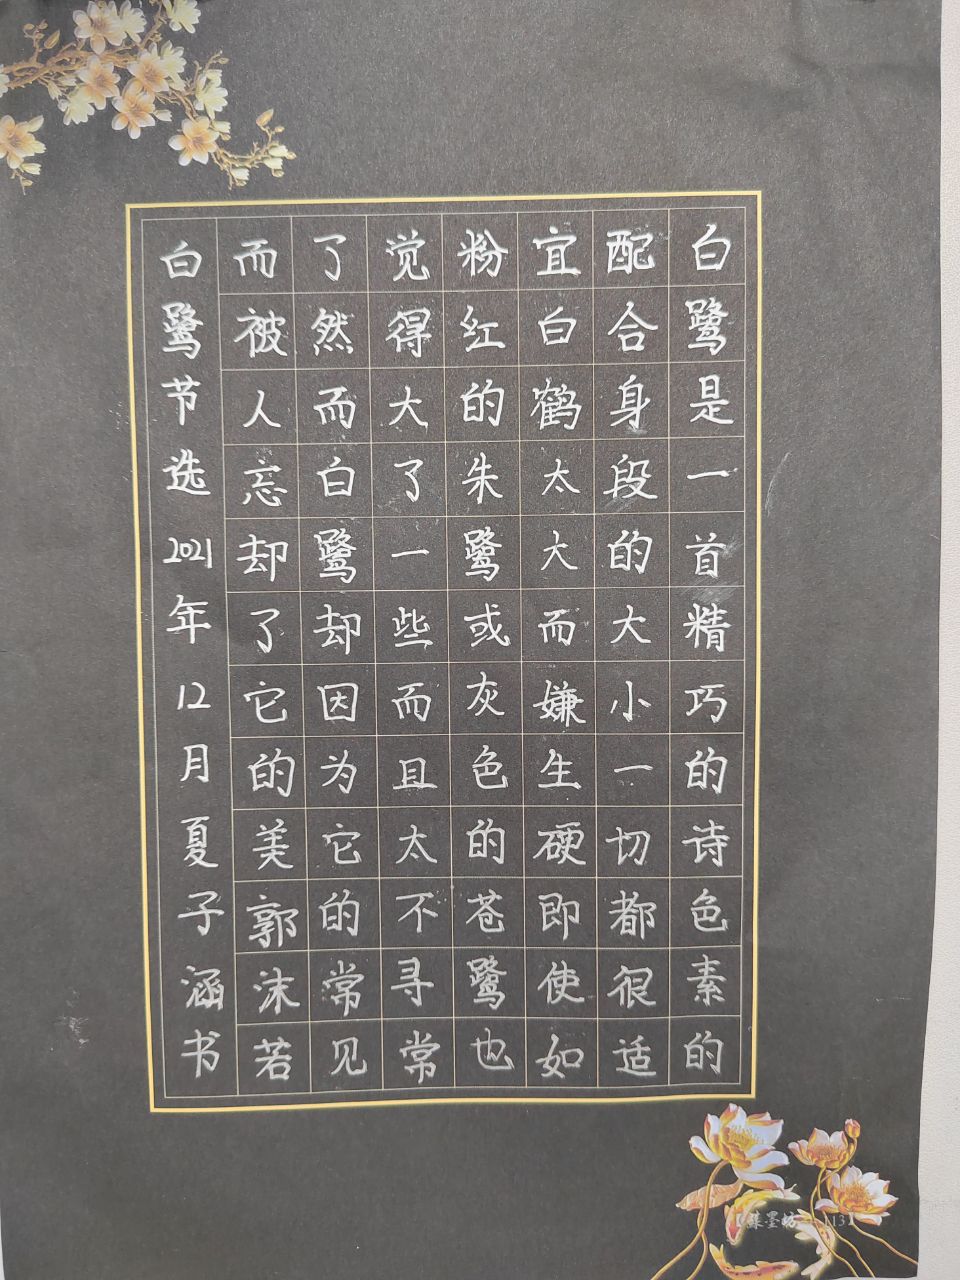 白鹭是一首精巧的诗色素的
配合身段的大小一切都很适
宜白鹤太大而嫌生硬即使如
粉红的朱鹭或灰色的苍鹭也
觉得大了一些而且太不寻常
了然而白鹭却因为它的常见
而被人忘却了它的美郭沫若
白鹭节选2021年12月夏子涵书
墨坊